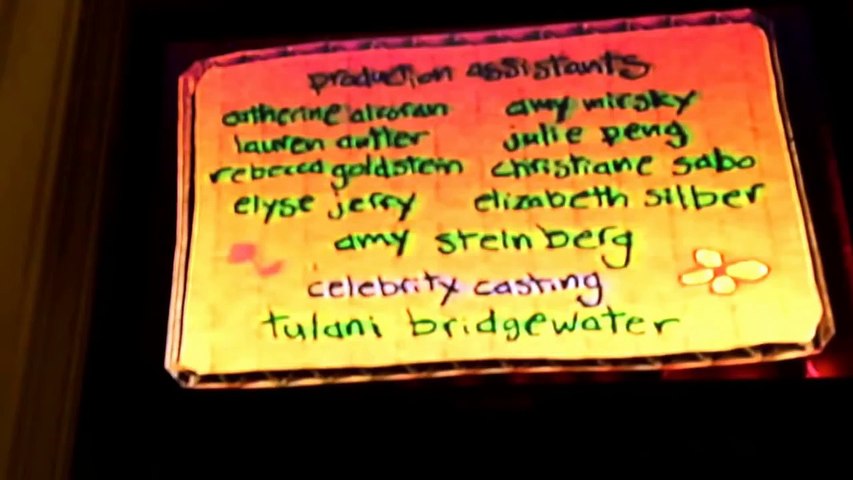 production assistants
catherine alcoran amy mirsky
lauren julie peng
rebecca goldstein christiane sabo
elyse jerry elizabeth silber
amy steinberg
celebrity casting
tulani bridgewater